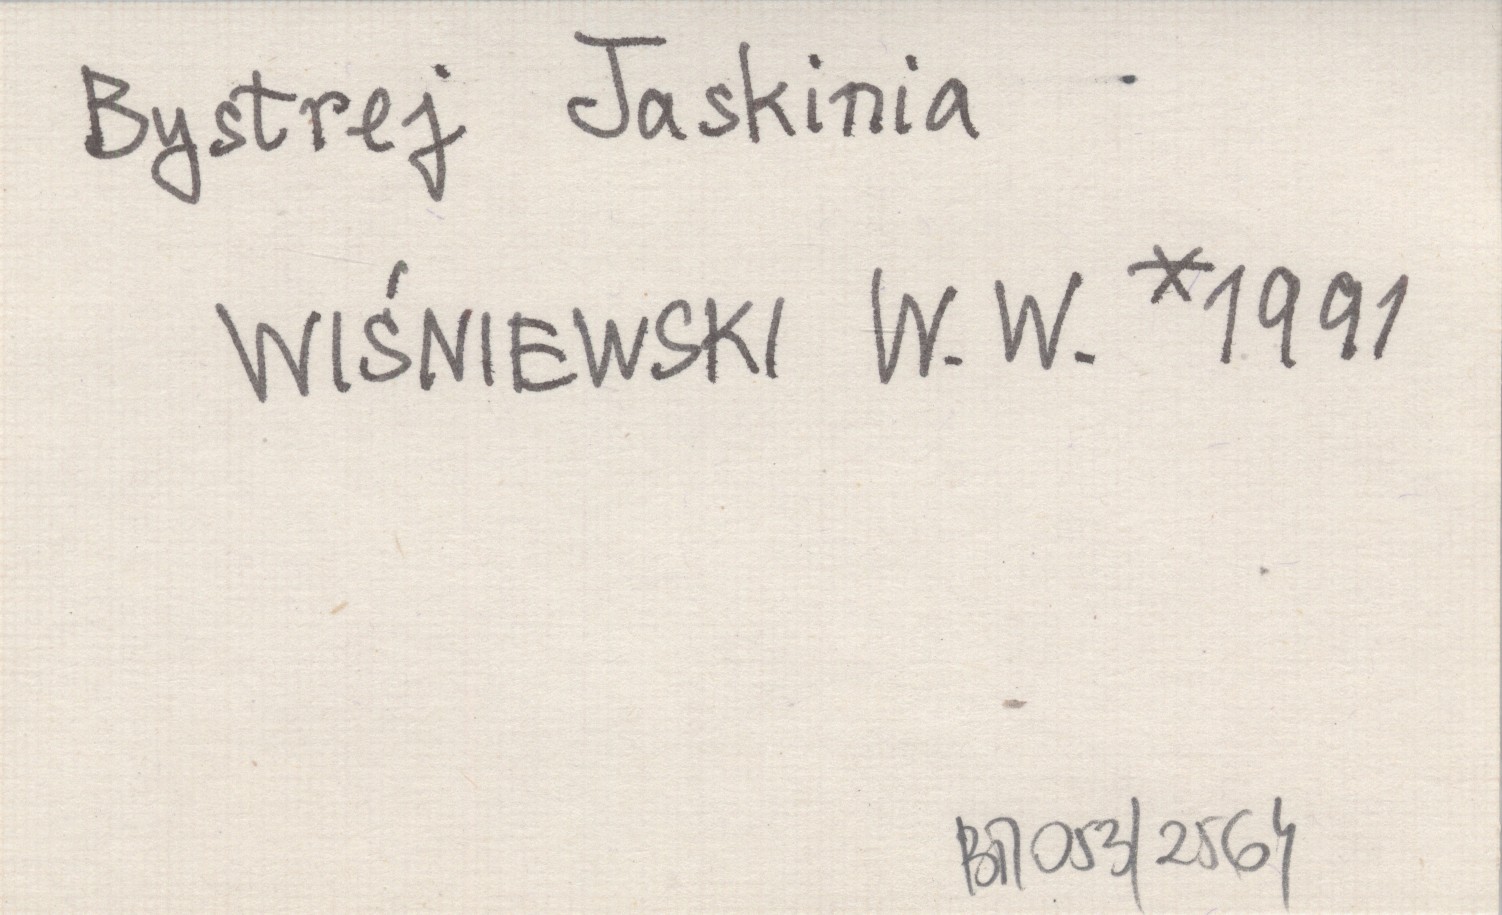 Bystrej Jaskinia
WIŚNIEWSKI W. W. *1991
053/2564